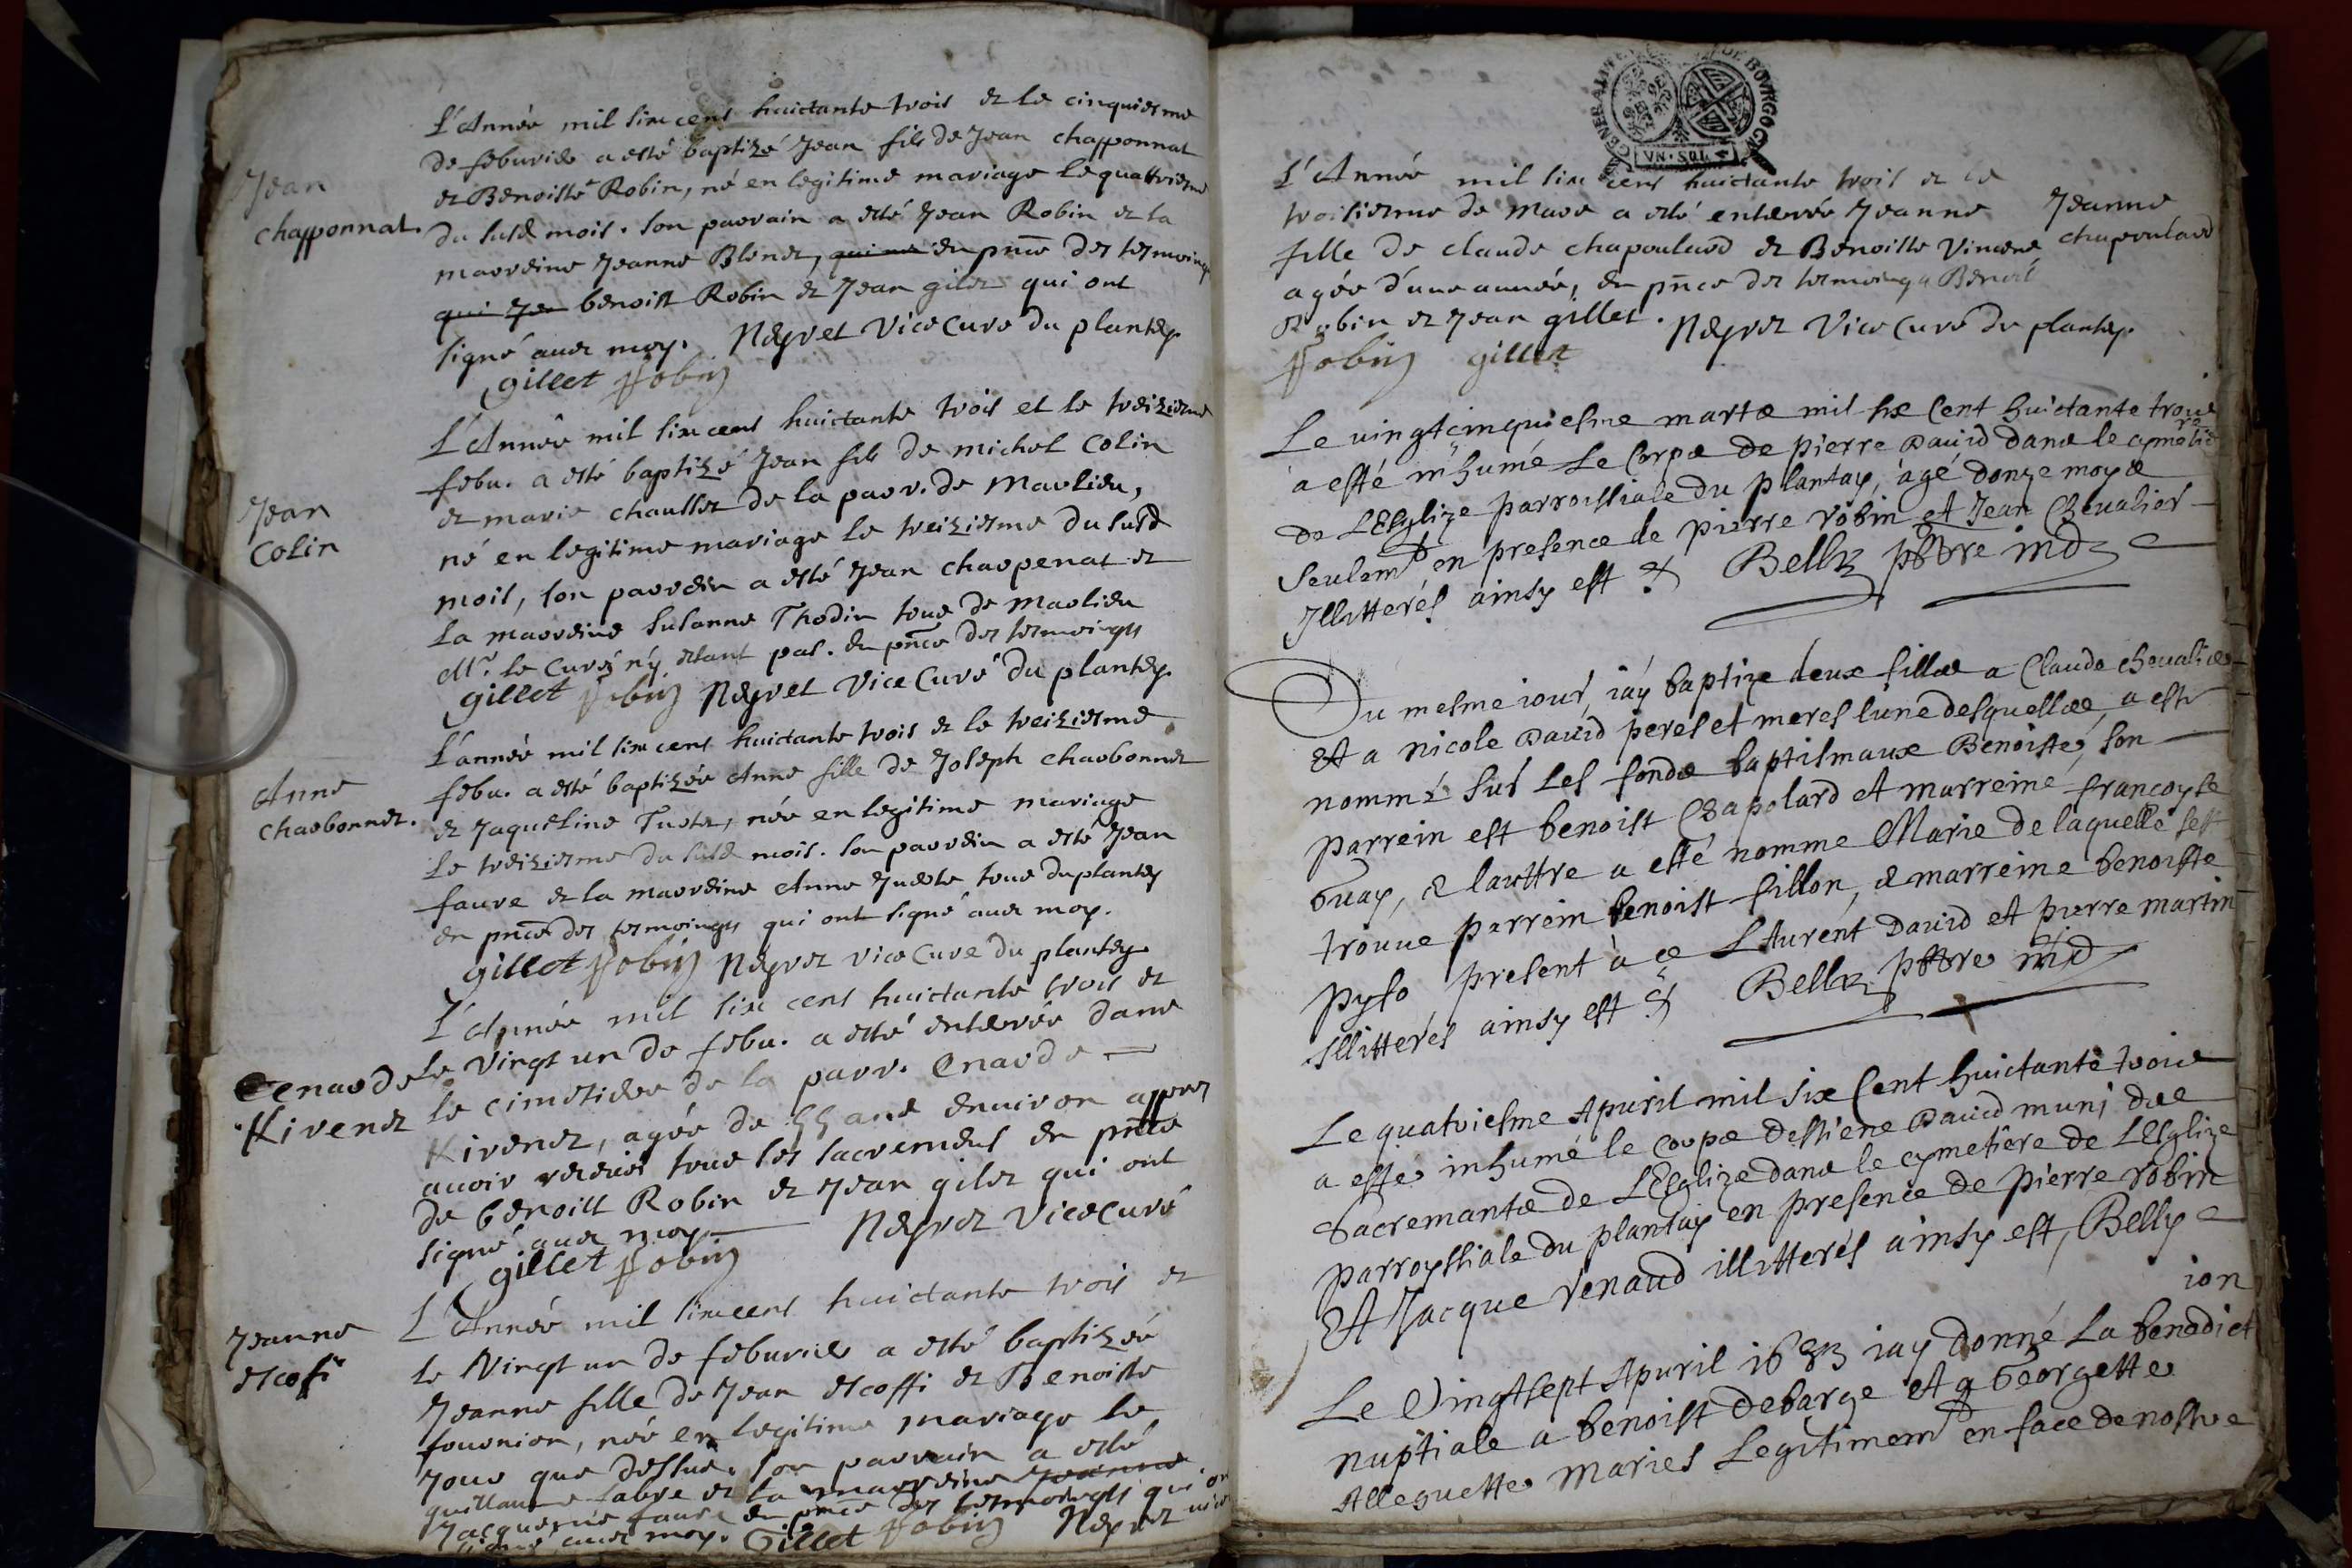 L'Année mil six cens huictante trois et le cinquiesme
de feburier a esté baptizé Jean fils de Jean chapponnat
et Benoiste Robin, né en legitime mariage le quattriesme
du susd mois. son parrain a esté Jean Robin et la
Jean
chapponnat.
marreine Jeanne Blenet, en pnce des tesmoings
benoist Robin et Jean gilet qui ont
signé avec moy. Neyret Vice Curé du plantey
gillet Robin
L'Année mil six cens huictante trois et le treiziesme
febu. a esté baptizé Jean fils de michel Colin
Jean
Colin
et marie chausset de la parr. de Marlieu,
né en legitime mariage le treiziesme du susd
mois, son parrein a esté Jean charpenat et
la marreine Susanne Thodin tous de marlieu
Mr. le Curé n'y estant pas. en pnce des tesmoings
gillet Robin Neyret Vice Curé du plantey
L'année mil six cens huictante trois et le treiziesme
Anne
charbonnet.
febu. a esté baptizée Anne fille de Joseph charbonnet
et Jaqueline Tustet, née en legitime mariage
le treiziesme du susd mois. son parrein a esté Jean
faure et la marreine Anne tous du plantey
en pnce des tesmoings qui ont signé avec moy.
gillet Robin Neyret vice Curé du plantey
L'Année mil six cens huictante trois et
le vingt un de febu. a esté enterrée dans
Enarde
Kivenet
le cimetiere de la parr. Enarde
Kivenet, agée de 55 ans environ apprez
avoir receus tous les sacremens en pnce
de benoist Robin et Jean gilet qui ont
signé avec moy Neyret Vice Curé
gillet Robin
Jeanne
escofi
L'Année mil six cens huictante trois et
le Vingt un de feburier a esté baptizée
Jeanne fille de Jean escoffi et Benoiste
fournion, née en legitime mariage le
jour que dessus. son parrain a esté
guillaume fabre et la marreine Jeanne
Jacquemé faure en pnce des tesmoings qui on
signé avec moy. Gillet Robin Neyret vice
GENERALITE DE BOVRGOGNE
VN·SOL
L'Année mil six cens huictante trois et le
troisiesme de Mars a esté enterrée Jeanne
Jeanne
chapoulard
fille de claude chapoulard et Benoiste Vincent
agée d'une année, en pnce des tesmoings Benoit
Robin et Jean gillet. Neyret Vice Curé du plantey
Robin gillet
Le vingtcinquiesme marts mil six Cent huictante trois
a esté inhumé Le Corps de pierre David dans le cymetiere
de LEsglize parroissiale du plantay, agé donze moys
Seulemt en presence de pierre robin et Jean Chevalier
Jllitterés ainsy est Belly pbtre ind
Du mesme iour, iay baptize deux filles a Claude chevalier
et a nicole David peres et meres lune desquelles, a esté
nommé sur Les fonds baptismaux Benoiste, son
parrein est benoist Chapolard et marreine francoyse
Guay, & lauttre a esté nomme Marie de laquelle sest
trouve parrein benoist fillon, & marreine benoiste
pyso present à ce LAurent David et pierre martin
Jllitterés ainsy est Belly pbtre ind
Le quatriesme Apuril mil six Cent huictante trois
a este inhumé le corps destiene David muni des
Sacremants de LEsglize dans le cymetiere de LEsglize
parroyssiale du plantay en presence de pierre robin
et Jacque renaud illitterés ainsy est, Belly
Le Vingtsept Apuril 1683 iay donné La benediction
nuptiale a benoist debarge et a Georgette
Alleguette maries Legitimemt en face de nostre